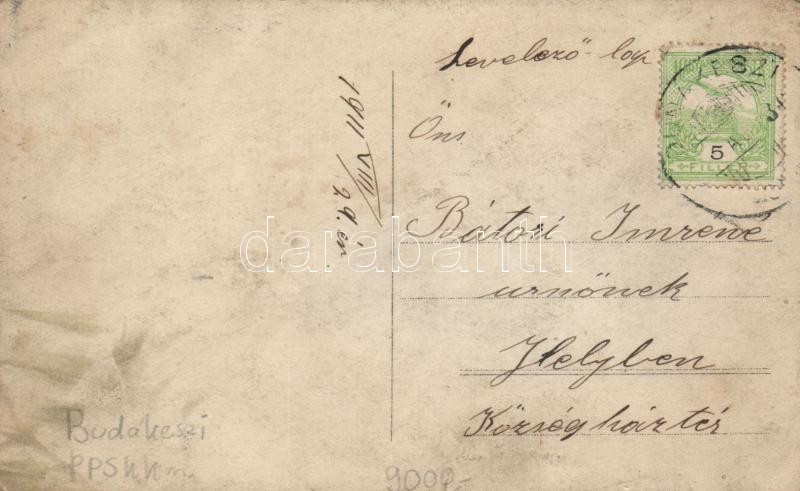 Levelező-lap
1911 VIII/29.én
Öns
Bátori Imrené
urnőnek
Helyben
Községháztér
5
FILLÉR
darabanth
Budakeszi
9000.-